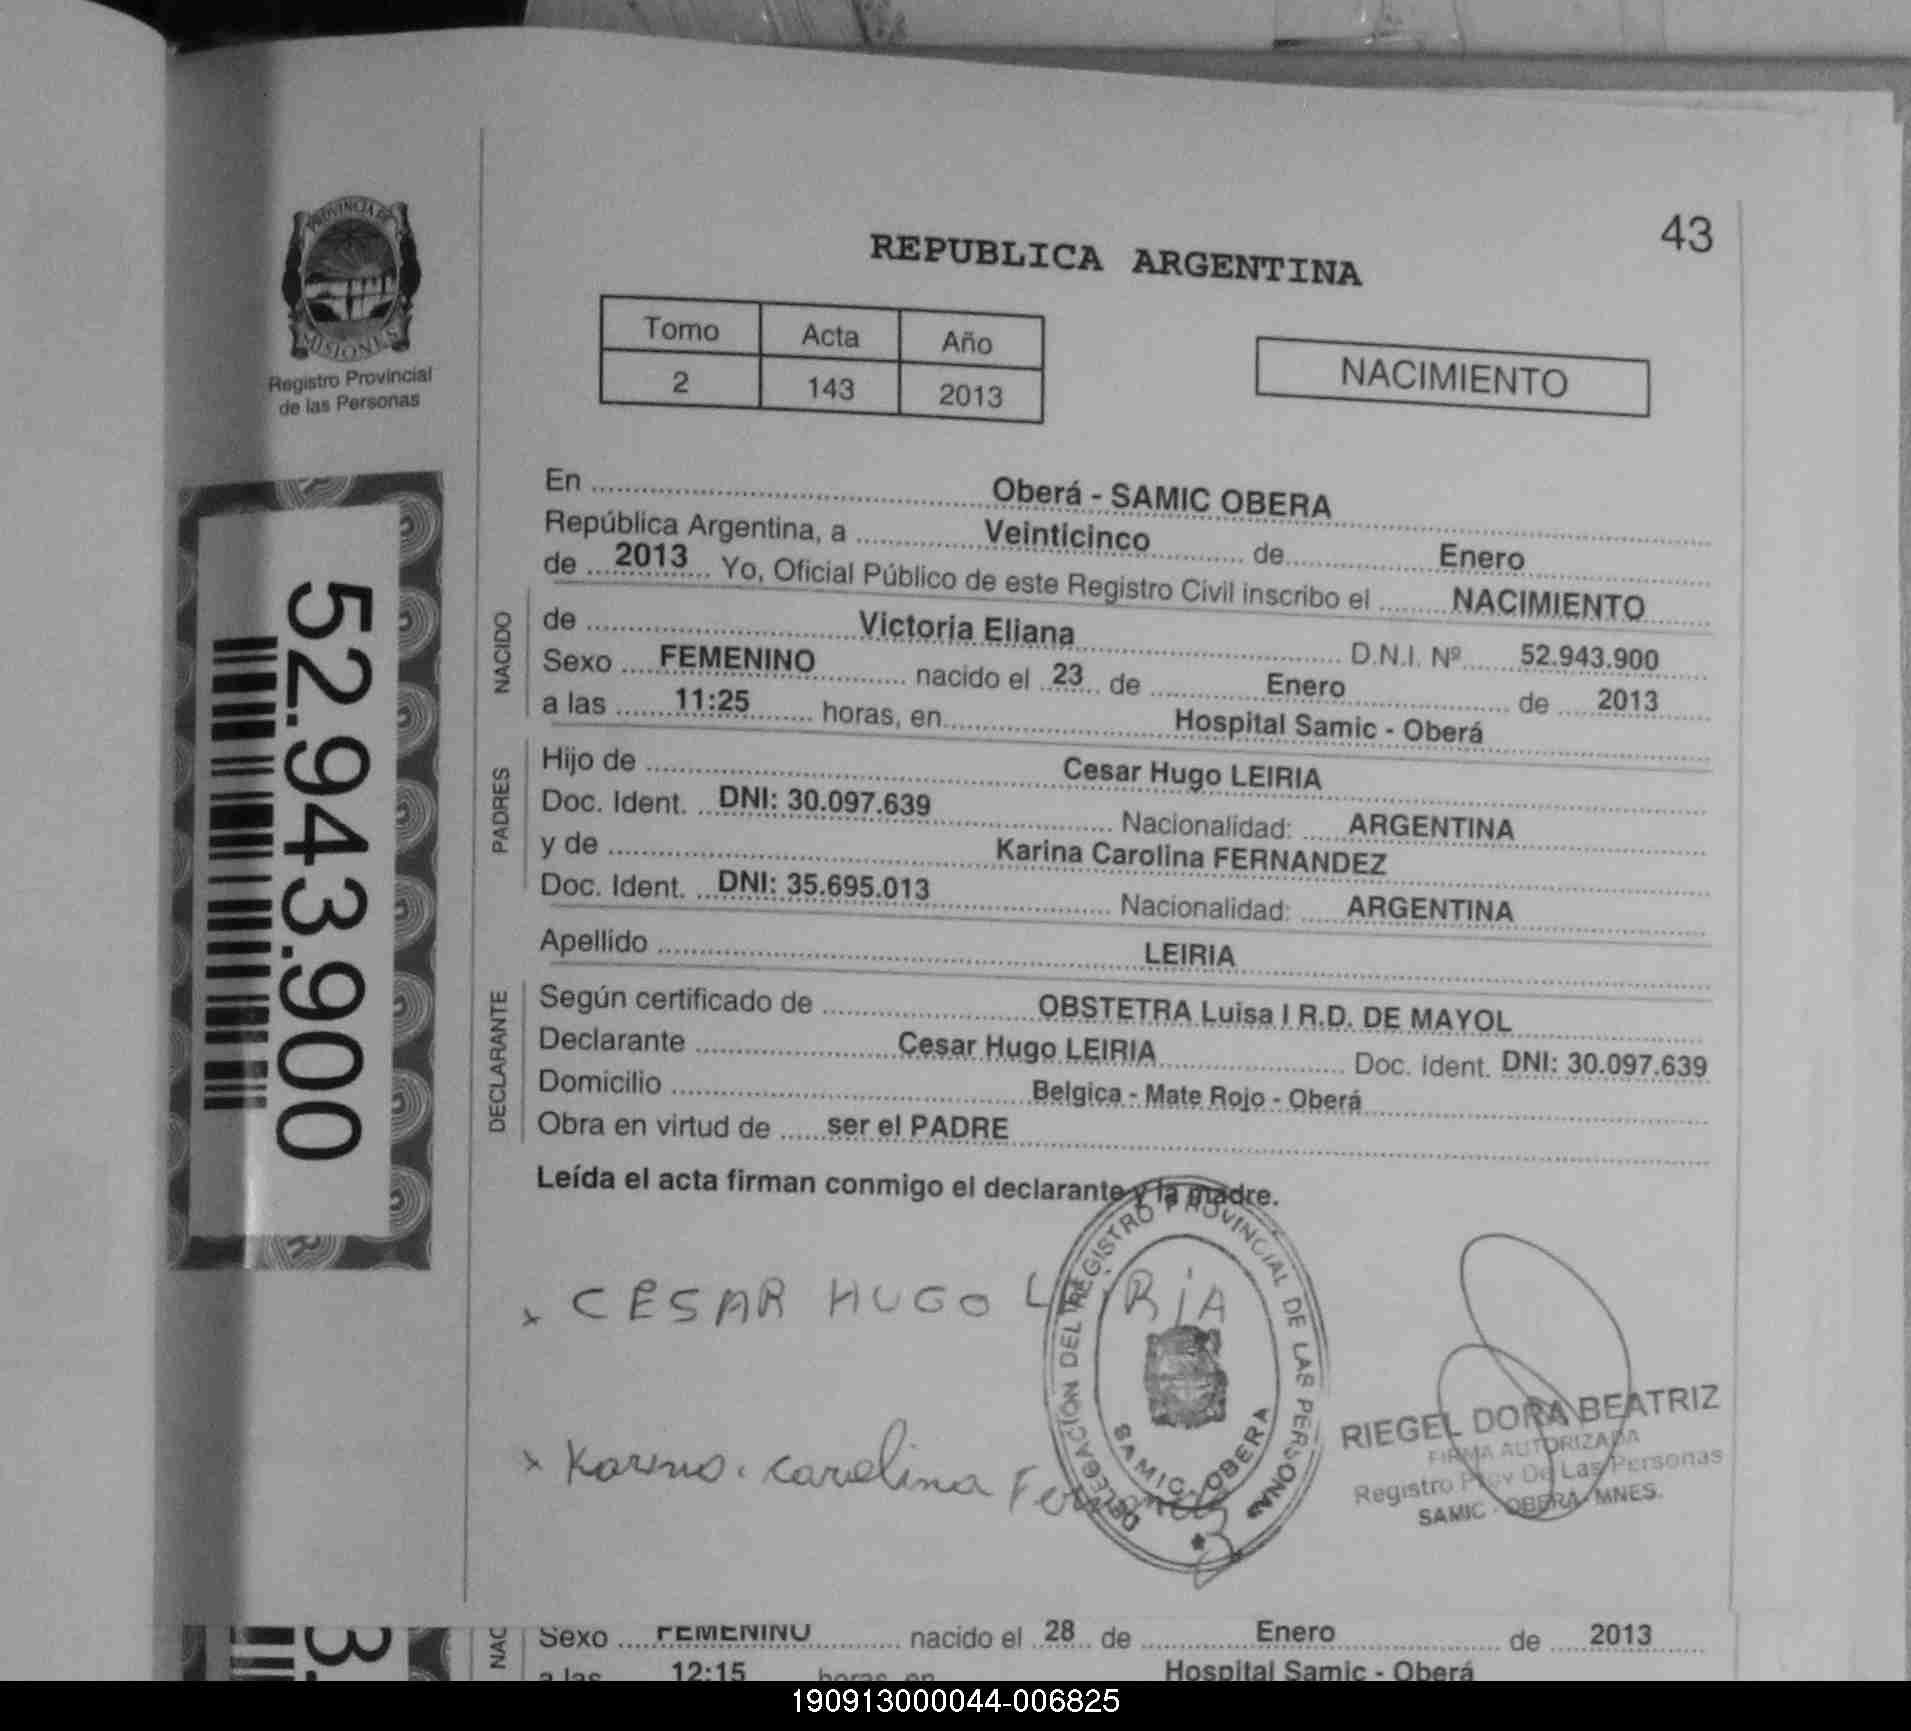 43
REPUBLICA ARGENTINA
PROVINCIA DE
MISIONES
Registro Provincial
de las Personas
Tomo Acta Año
2 143 2013
NACIMIENTO
52.943.900
En Oberá - SAMIC OBERA
República Argentina, a Veinticinco de Enero
de 2013 Yo, Oficial Público de este Registro Civil inscribo el NACIMIENTO
NACIDO
de Victoria Eliana D.N.I. Nº 52.943.900
Sexo FEMENINO nacido el 23 de Enero de 2013
a las 11:25 horas, en Hospital Samic - Oberá
PADRES
Hijo de Cesar Hugo LEIRIA
Doc. Ident. DNI: 30.097.639 Nacionalidad: ARGENTINA
y de Karina Carolina FERNANDEZ
Doc. Ident. DNI: 35.695.013 Nacionalidad: ARGENTINA
Apellido LEIRIA
DECLARANTE
Según certificado de OBSTETRA Luisa I R.D. DE MAYOL
Declarante Cesar Hugo LEIRIA Doc. Ident. DNI: 30.097.639
Domicilio Belgica - Mate Rojo - Oberá
Obra en virtud de ser el PADRE
Leída el acta firman conmigo el declarante y la madre.
x CESAR HUGO LEiRiA
DELEGACION DEL REGISTRO PROVINCIAL DE LAS PERSONAS
SAMIC - OBERA
x Karina. carolina Fernandez
RIEGEL DORA BEATRIZ
FIRMA AUTORIZADA
Registro Prov De Las Personas
SAMIC - OBERA - MNES.
3.
NAC
Sexo FEMENINO nacido el 28 de Enero de 2013
a las 12:15 horas, en Hospital Samic - Oberá
190913000044-006825